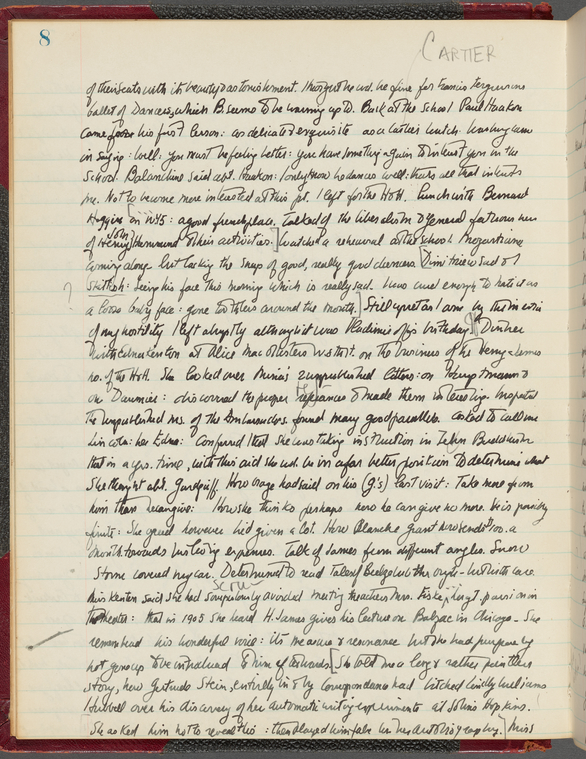 8
CARTIER
of their seats with its beauty & astonishment. thought he wd. be fine for Francis Fergusson's
ballet of Dancers, which B. seems to be warming up to. Back at the School Paul Haakon
came for his first lesson: as delicate & exquisite as a Cartier watch.
in saying: Well: you must be feeling better: you have something again to interest you in the
School. Balanchine said abt. Haakon: I only know he dances well: that's all that interests
me. Not to become more interested at this pt. I left for the H&H. Lunch with Bernard
Haggin on W45: a good french place. Talked of the liberalism & general
of John Henry Hammond & their activities.] Watched a rehearsal at the school. Mozartiana
coming along but lacking the snap of good, really good dancers. [Dimitriew said I
? : Seeing his face this morning which is really sad. I was cruel enough to
a loose baby face: gone to the mouth.] Still upset as I am by the
of my hostility I left abruptly although it was Vladimir's birthday. ¶ Dinner
with Edna Kenton at Alice MacAlister's W. 57th St. on the business of the Henry James
no. of the H&H. She looked over Mina's 2 unpublished letters: on
on Daumier: discovered the proper references & made them interesting.
the unpublished ms. of the Ambassadors, found many good parallels. Asked to call me
Lincoln: her Edna: Confessed that she was taking instruction in Zen Buddhism
that in a yrs. time, with this aid she wd. be in a far better position to determine what
she thought abt. Gurdjieff. How Orage had said on his (G's) last visit: Take more from
him than he can give: How she thinks perhaps now he can give no more. He is possibly
finite: She said however he'd given a lot. How Blanche Grant now sends \$100. a
month towards his living expenses. Talk of James from different angles. Snow
Storm covered my car. Determined to read Tales of Beelzebub
Miss Kenton said She had scrupulously avoided meeting
theater: that in 1905 she heard H. James gives his lecture on Balzac in Chicago. She
remembered his wonderful voice: its measure & resonance but she had purposely
not gone up to be introduced to him afterwards. [She told me a long & rather pointless
story, how Gertrude Stein, entirely in & by correspondance had bitched Lindley Williams
Hubbell over his discovery of her automatic writing experiments at Johns Hopkins.
She asked him not to reveal this: then played him false in her autobiography.] Miss